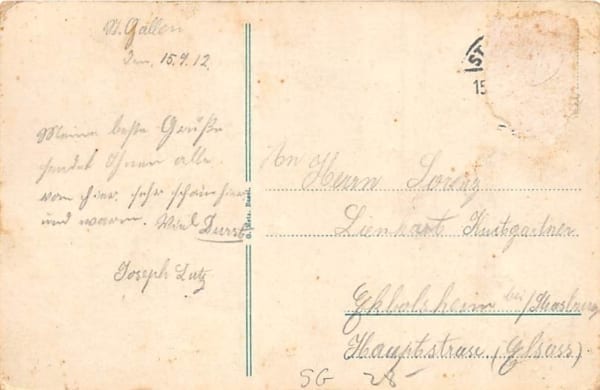 St. Gallen
den, 15.9.12.
Meine beste Grüße
sendet Ihnen alle
von hier. sehr schön hier
und warm. Viel Durst
Joseph Lutz
ST
15
An
Herrn Lorenz
Lienhart Kunstgärtner
Ekbolsheim bei/Strasburg
Hauptstrase (Elsass)
SG 28-